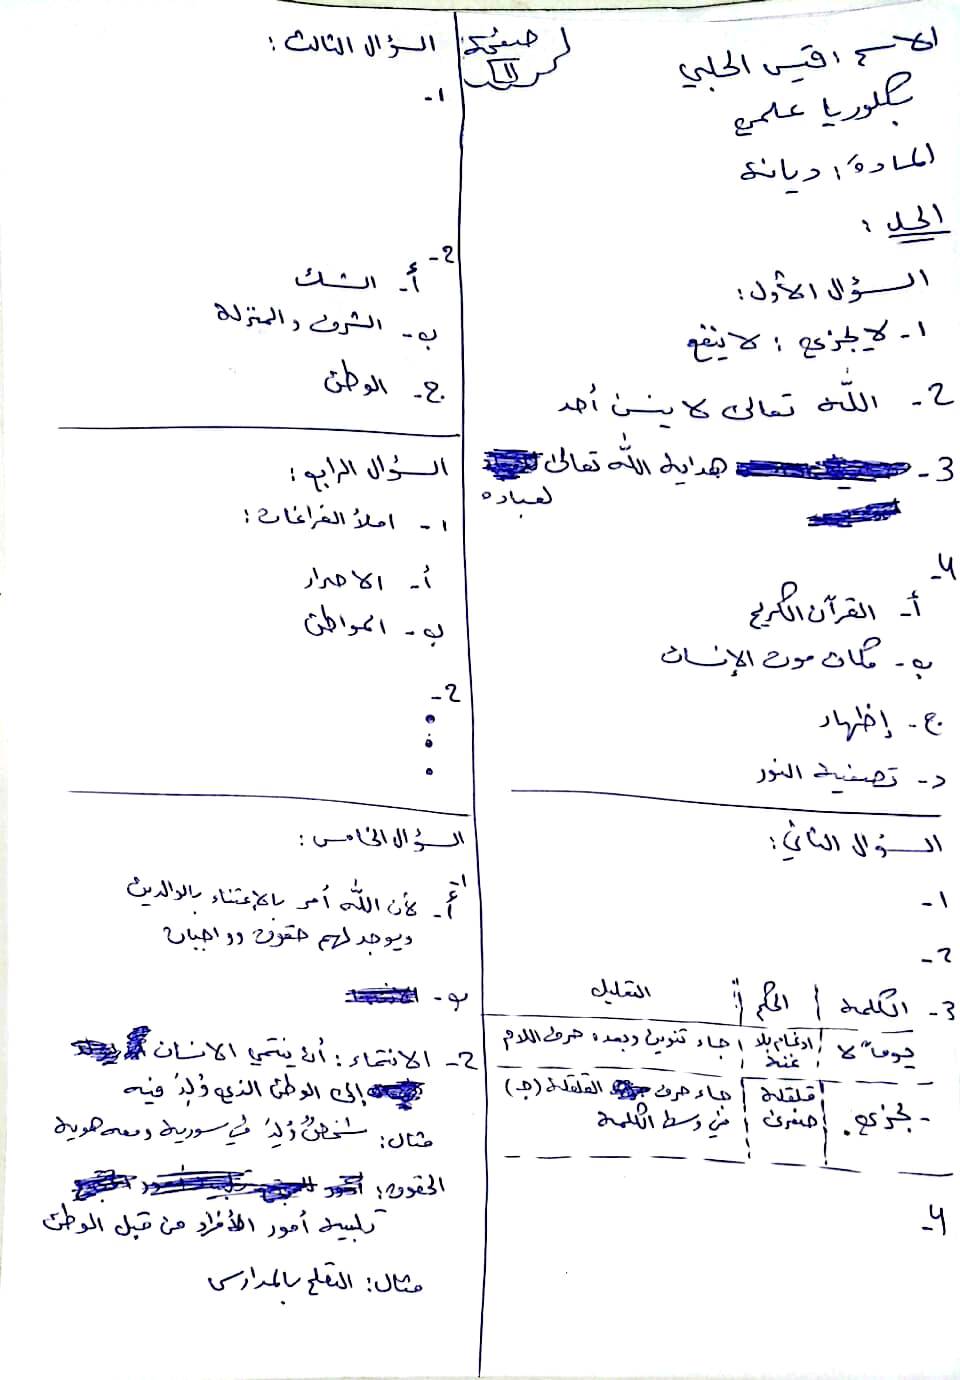 صفحة 1
الاسم: قيس الحلبي
بكلوريا علمي
المادة: ديانة
الحل:
السؤال الأول:
1- لا يجزي: لا ينفع
2- الله تعالى لا ينسى أحد
3- هداية الله تعالى
لعباده
4-
أ- القرآن الكريم
ب- مكان موت الإنسان
ج- إظهار
د- تصفية النور
السؤال الثاني:
1-
2-
3- الكلمة | الحكم | التعليل
يوماً لا | ادغام بلا غنة | جاء تنوين وبعده حرف اللام
- يجزي | قلقلة صغرى | جاء حرف القلقلة (جـ) في وسط الكلمة
4-
السؤال الثالث:
1-
2-
أ- الشك
ب- الشرف والمنزلة
ج- الوطن
السؤال الرابع:
1- املأ الفراغات:
أ- الاحرار
ب- المواطن
2-
السؤال الخامس:
1-
أ- لأن الله أمر بالاعتناء بالوالدين
ويوجد لهم حقوق وواجبات
ب-
2- الانتماء: أن ينتمي الانسان
إلى الوطن الذي وُلِدَ فيه
مثال: شخصٌ وُلِدَ في سورية ومعه هوية
الحقوق:
تلبية أمور الأفراد من قبل الوطن
مثال: التعلم بالمدارس